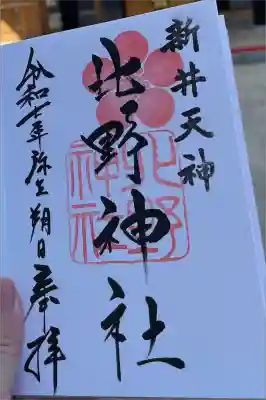 新井天神
北野神社
令和七年弥生朔日奉拝
北野
神社